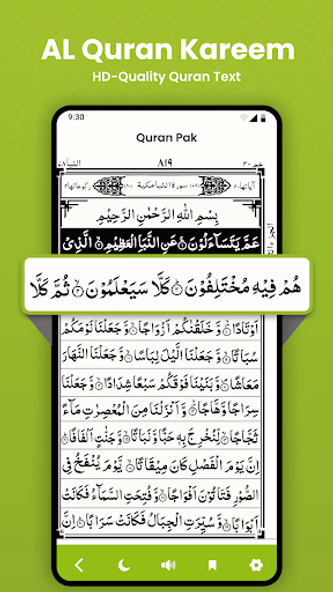 AL Quran Kareem
HD-Quality Quran Text
9:30
Quran Pak
النبا ٧٨
٨١٩
عم ٣٠
سورة النبا مكية
بِسْمِ اللهِ الرَّحْمٰنِ الرَّحِيْمِ
عَمَّ يَتَسَآءَلُوْنَ ۝ عَنِ النَّبَاِ الْعَظِيْمِ ۝ الَّذِيْ
هُمْ فِيْهِ مُخْتَلِفُوْنَ ۝ كَلَّا سَيَعْلَمُوْنَ ۝ ثُمَّ كَلَّا
اَوْتَادًا ۝ وَّ خَلَقْنٰكُمْ اَزْوَاجًا ۝ وَّ جَعَلْنَا نَوْمَكُمْ
سُبَاتًا ۝ وَّ جَعَلْنَا الَّيْلَ لِبَاسًا ۝ وَّ جَعَلْنَا النَّهَارَ
مَعَاشًا ۝ وَّ بَنَيْنَا فَوْقَكُمْ سَبْعًا شِدَادًا ۝ وَّ جَعَلْنَا
سِرَاجًا وَّهَّاجًا ۝ وَّ اَنْزَلْنَا مِنَ الْمُعْصِرٰتِ مَآءً
ثَجَّاجًا ۝ لِّنُخْرِجَ بِهٖ حَبًّا وَّ نَبَاتًا ۝ وَّ جَنّٰتٍ اَلْفَافًا ۝
اِنَّ يَوْمَ الْفَصْلِ كَانَ مِيْقَاتًا ۝ يَّوْمَ يُنْفَخُ فِي
الصُّوْرِ فَتَاْتُوْنَ اَفْوَاجًا ۝ وَّ فُتِحَتِ السَّمَآءُ فَكَانَتْ
اَبْوَابًا ۝ وَّ سُيِّرَتِ الْجِبَالُ فَكَانَتْ سَرَابًا ۝ اِنَّ